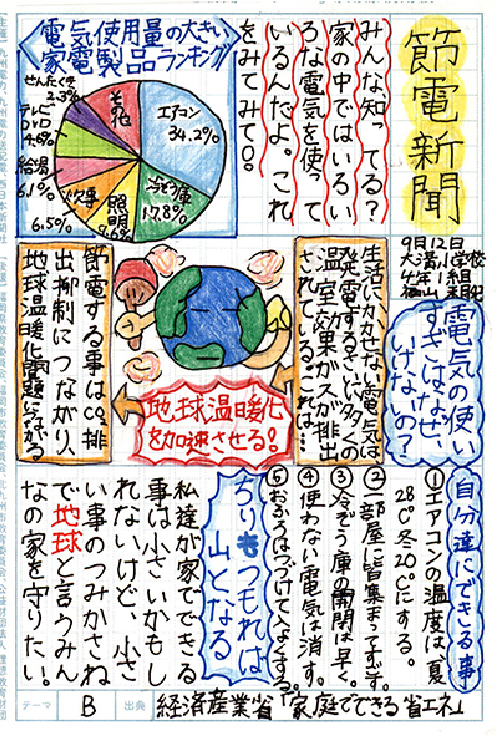 節電新聞
9月12日
大溝小学校
4年1組
みんな、知ってる?
家の中ではいろい
ろな電気を使って
いるんだよ。これ
をみてみて!。
電気使用量の大きい
家電製品ランキング
エアコン
34.2%
冷ぞう庫
17.8%
照明
9.6%
炊事
6.5%
給湯
6.1%
テレビ
DVD
4.6%
せんたくき
2.3%
その他
電気の使い
すぎはなぜ、
いけないの?
生活にかかせない電気は、
発電するさいに多くの
温室効果ガスが排出
されている。これは…
地球温暖化
を加速させる!
節電する事はCO2排
出抑制につながり、
地球温暖化問題にながる
自分達にできる事
①エアコンの温度は夏
28℃冬20℃にする。
②一部屋に皆集まってすごす。
③冷ぞう庫の開閉は早く。
④使わない電気は消す。
⑤おふろはつづけて入るようにする。
ちりもつもれば
山となる
私達が家でできる
事は小さいかもし
れないけど、小さ
い事のつみかさね
で地球と言うみん
なの家を守りたい。
テーマ B 出発 経済産業省「家庭でできる省エネ」